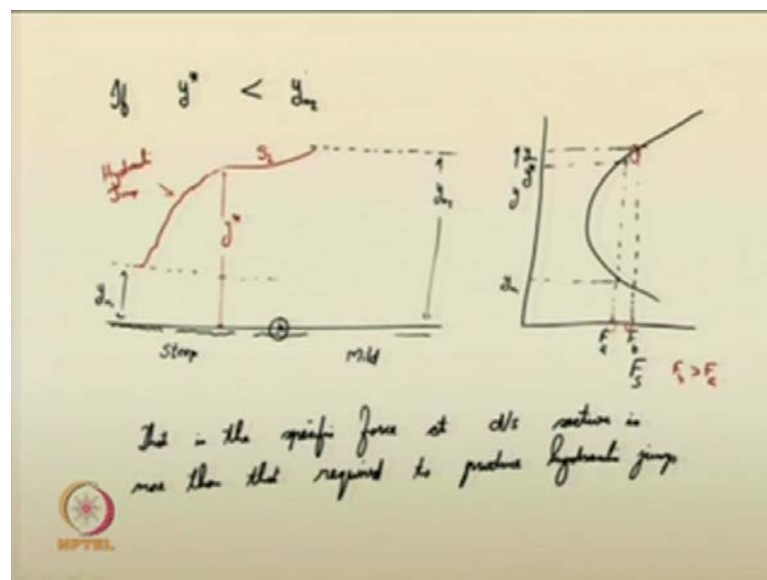 If y* < yn2
Hydraulic
Jump
S1
y*
yn1
yn2
Steep
Mild
y
yn1
Fa
Fb
Fs
Fb > Fa
That is the specific force at d/s section is
more than that required to produce hydraulic jump
NPTEL